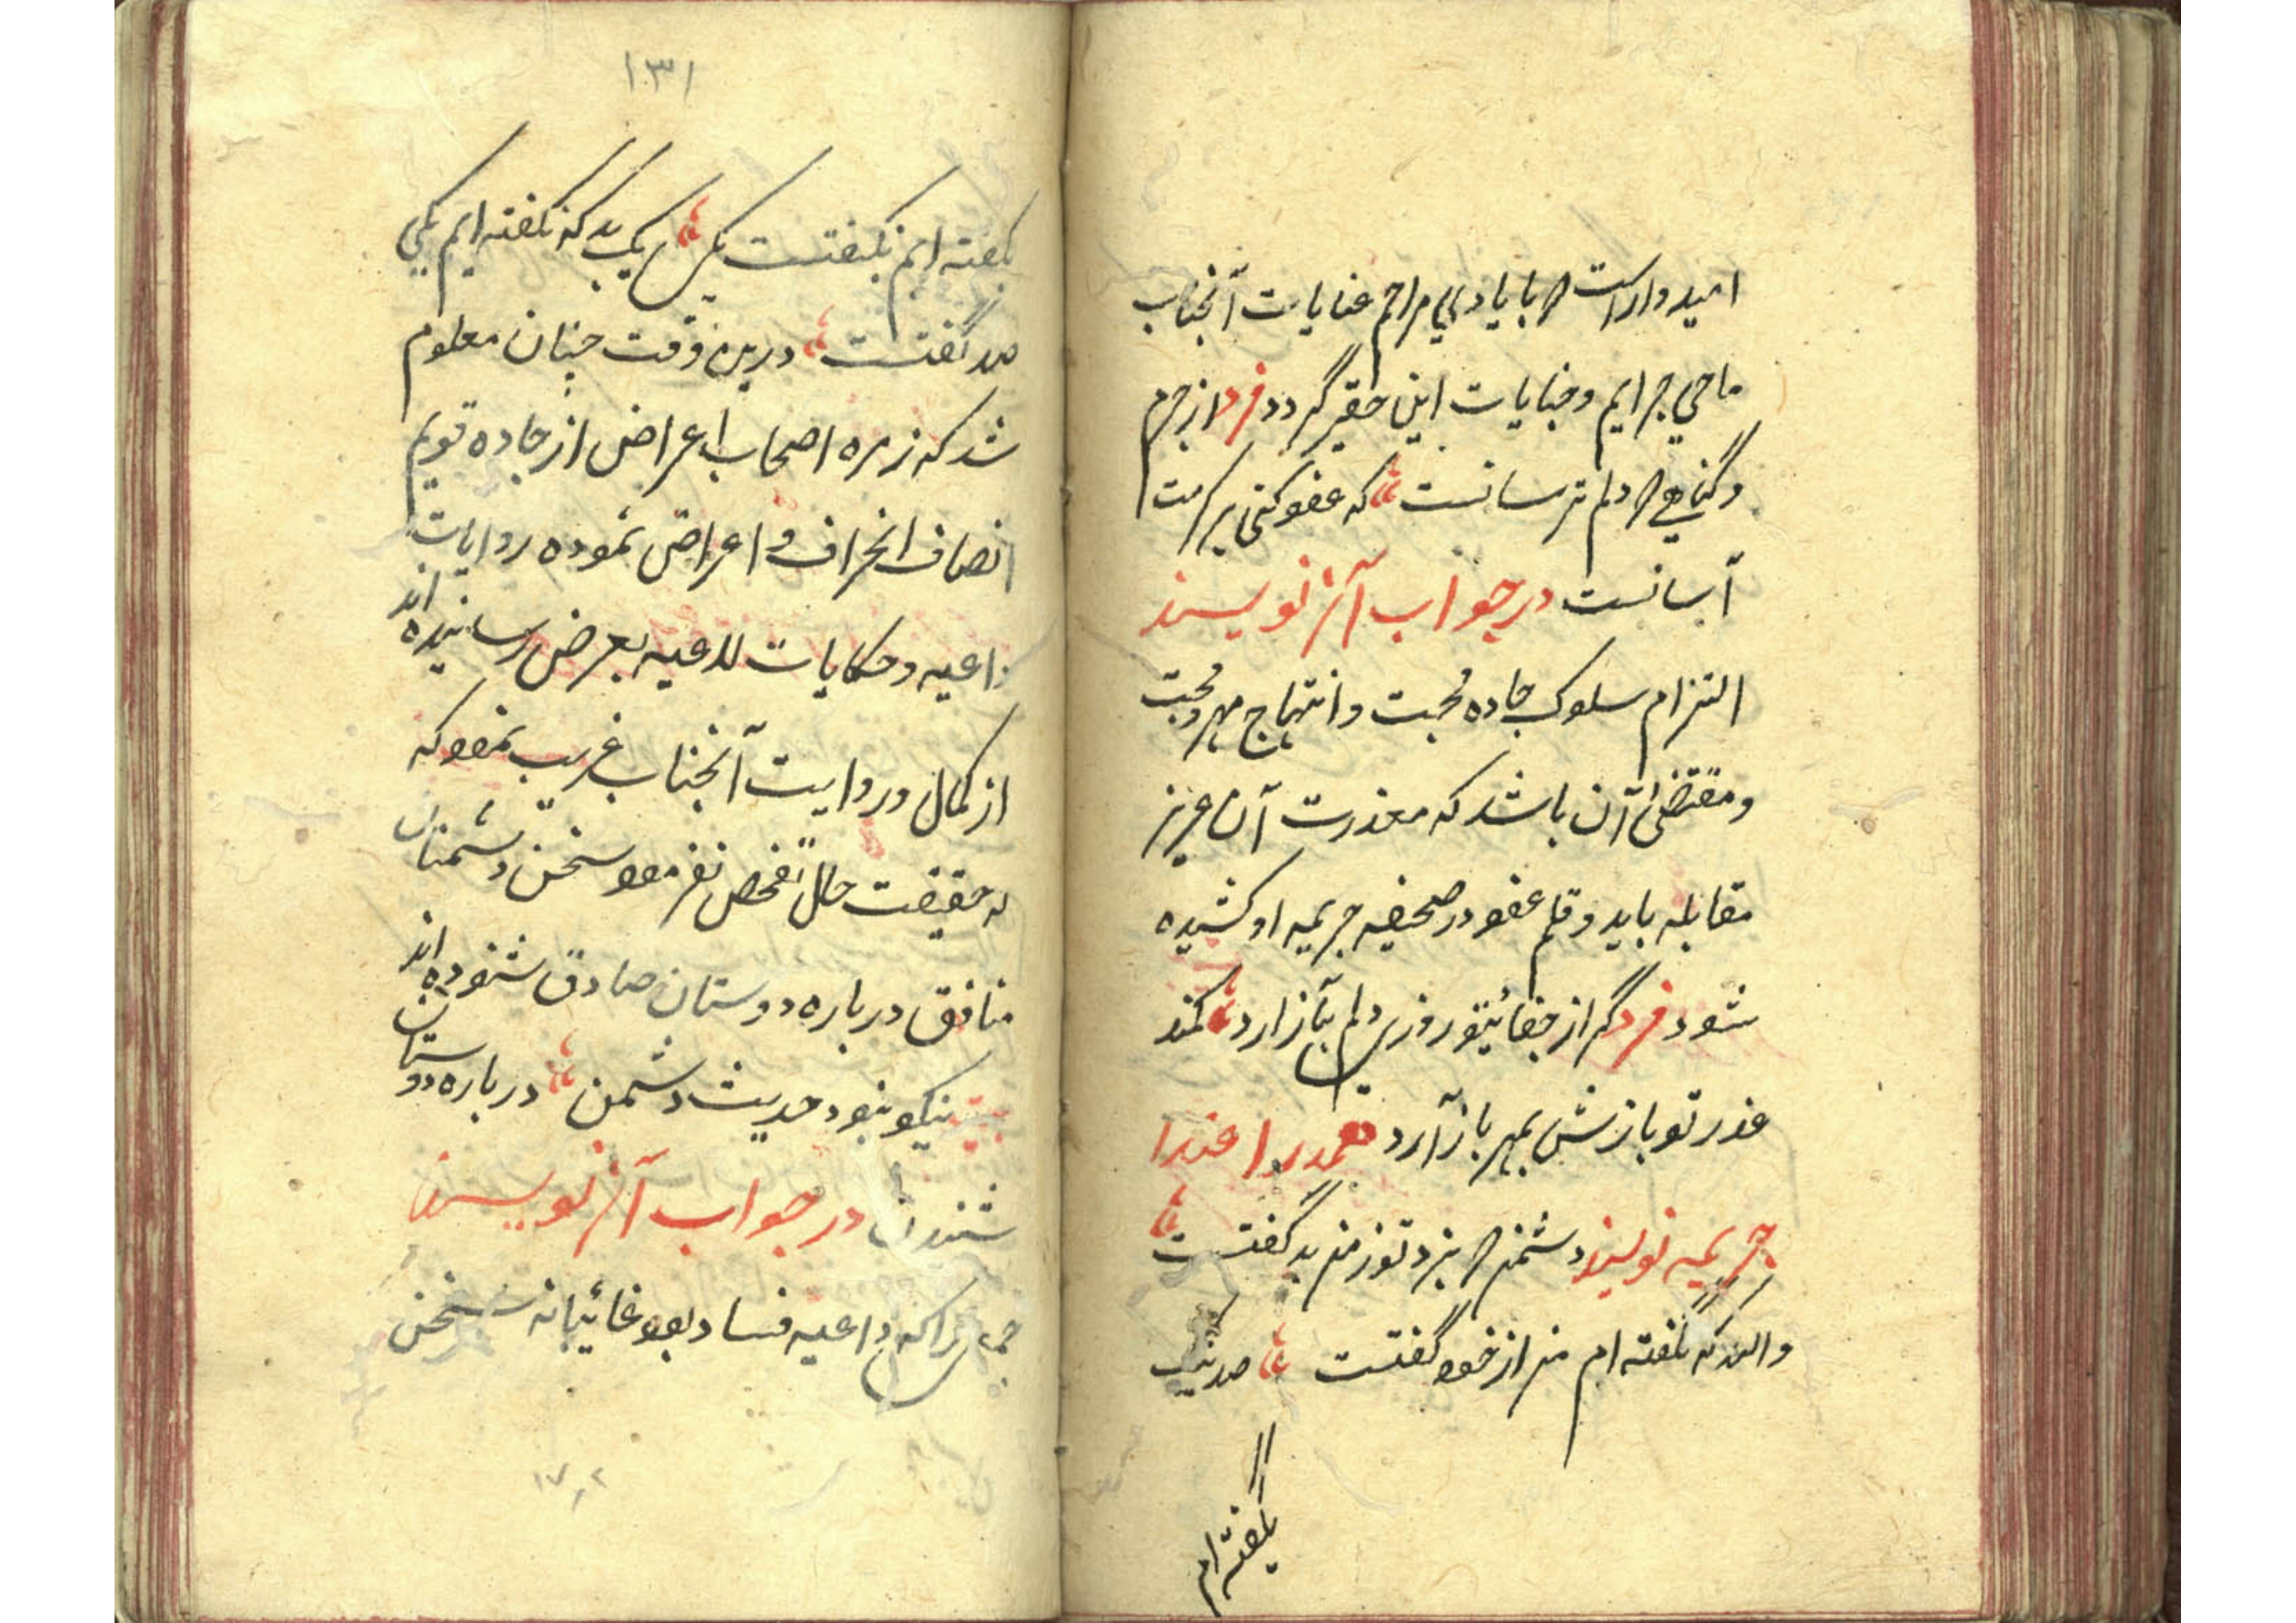 امیدوار است که بایادی مراحم عنایات آنجناب
ماحی جرایم و جنایات این حقیر گردد فرد از جرم
و گناهی که دلم ترسانست که عفو کنی بر کرمت
آسانست در جواب آن نویسند
التزام سلوک جاده محبت و انتهاج مهر محبت
و مقتضی آن باشد که معذرت آن عزیز
مقابله باید و قلم عفو در صحیفه جریمه او کشیده
شود فرد گر از جفائیتو روزی دلم بیازارد کمند
عذر تو بازش بمهر باز آرد عذرا
جریمه نویسند دشمن که بنزد تو ز من بد گفتست
والله که نگفته ام من از خود گفتست صد نیک
بگفته ام
۱۳۱
بگفته ایم نگفتست بکس یک بد که نگفته ایم یکی
صد گفتست درین وقت چنان معلوم
شد که زمره اصحاب اعراض از جاده قویم
انصاف انحراف و اعراض نموده روایات
داعیه و حکایات لاعیه بعرض رسانیده اند
از کمال و روایت آنجناب غریب نمود که
به حقیقت حال تفحص نفرمود سخن دشمنان
منافق درباره دوستان صادق شنوده اند
بیت نیکو نبود حدیث دشمن درباره دوستان
شنیدن در جواب آن نویسند
را که داعیه فساد بود غائبانه سخن
۱۷٫۲